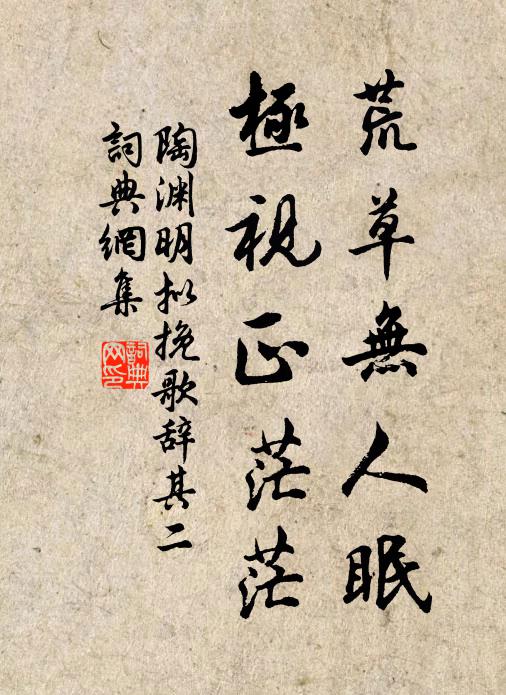 荒草無人眠
極視正茫茫
陶渊明拟挽歌辞其二
詞典網集
詞典网印